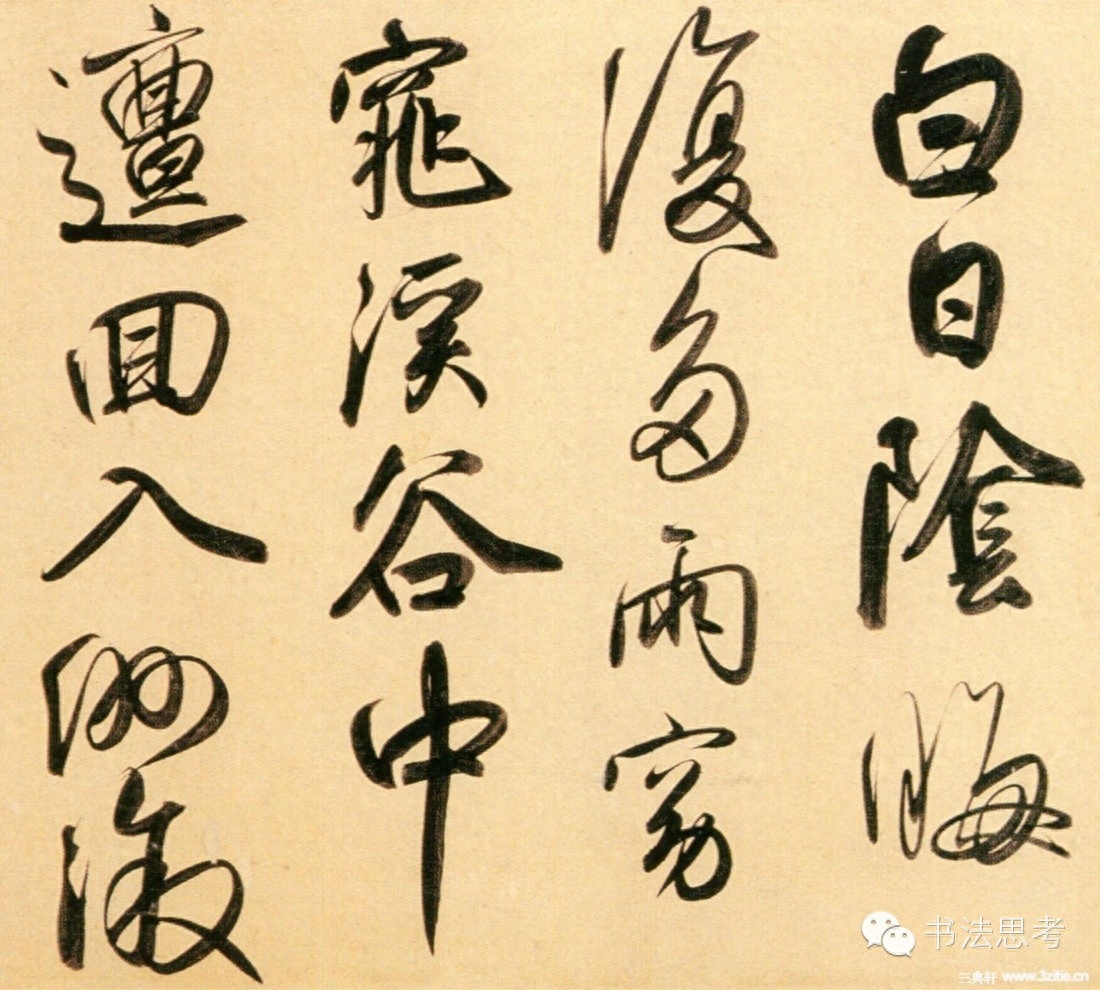 白日陰晦
復多雨窈
窕溪谷中
邅回入幽深
书法思考
三典轩 www.3zitie.cn